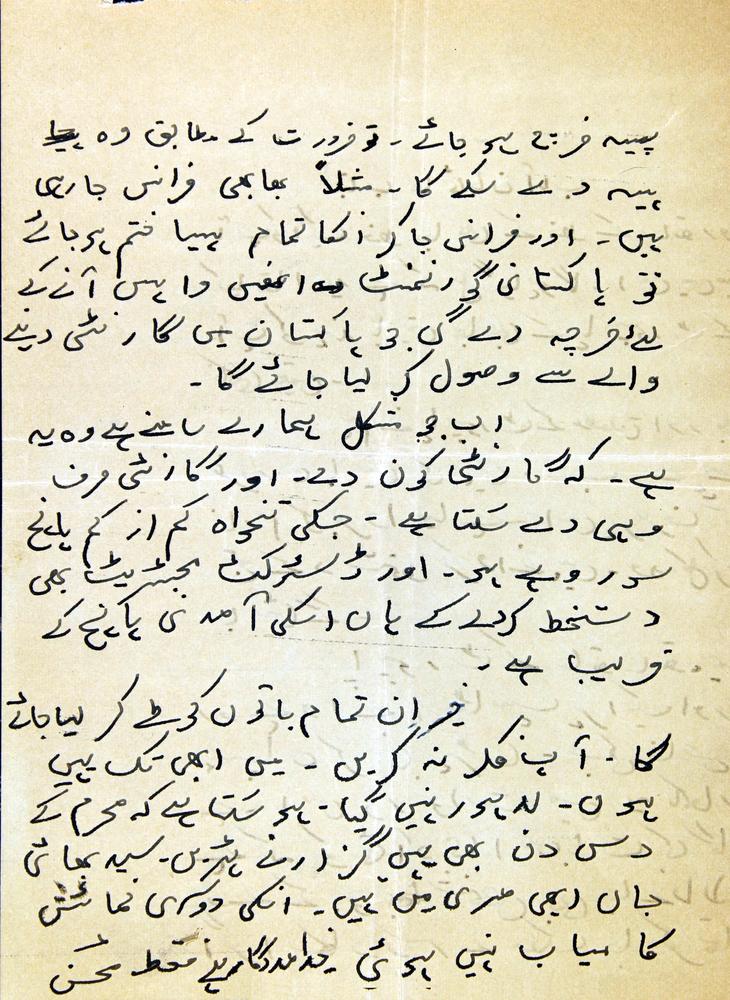 پیسہ خرچ ہو جائے۔ تو ضرورت کے مطابق وہ
پیسہ دے سکے گا۔ مثلاً بھابھی فرانس جا رہی
ہیں۔ اور فرانس جا کر انکا تمام پیسا ختم ہو جائے
تو پاکستانی گورنمنٹ انھیں واپس آنے کے
لئے خرچہ دے گی جو پاکستان میں گارنٹی دینے
والے سے وصول کر لیا جائے گا۔
اب جو مشکل ہمارے سامنے ہے وہ یہ
ہے۔ کہ گارنٹی کون دے۔ اور گارنٹی صرف
وہی دے سکتا ہے۔ جسکی تنخواہ کم از کم پانچ
سو روپے ہو۔ اور ڈسٹرکٹ مجسٹریٹ بھی
دستخط کردے کے ہاں اسکی آمدنی پانچ کے
قریب ہے۔
خیر ان تمام باتوں کو طے کر لیا جائے
گا۔ آپ فکر نہ کریں۔ میں ابھی تک یہیں
ہوں۔ لاہور نہیں گیا۔ ہو سکتا ہے کہ محرم کے
دس دن بھی یہیں گزارنے پڑیں۔ سید بھائی
جان ابھی مری میں ہیں۔ انکی دوسری نمائش
کامیاب نہیں ہوئی فقط محسن